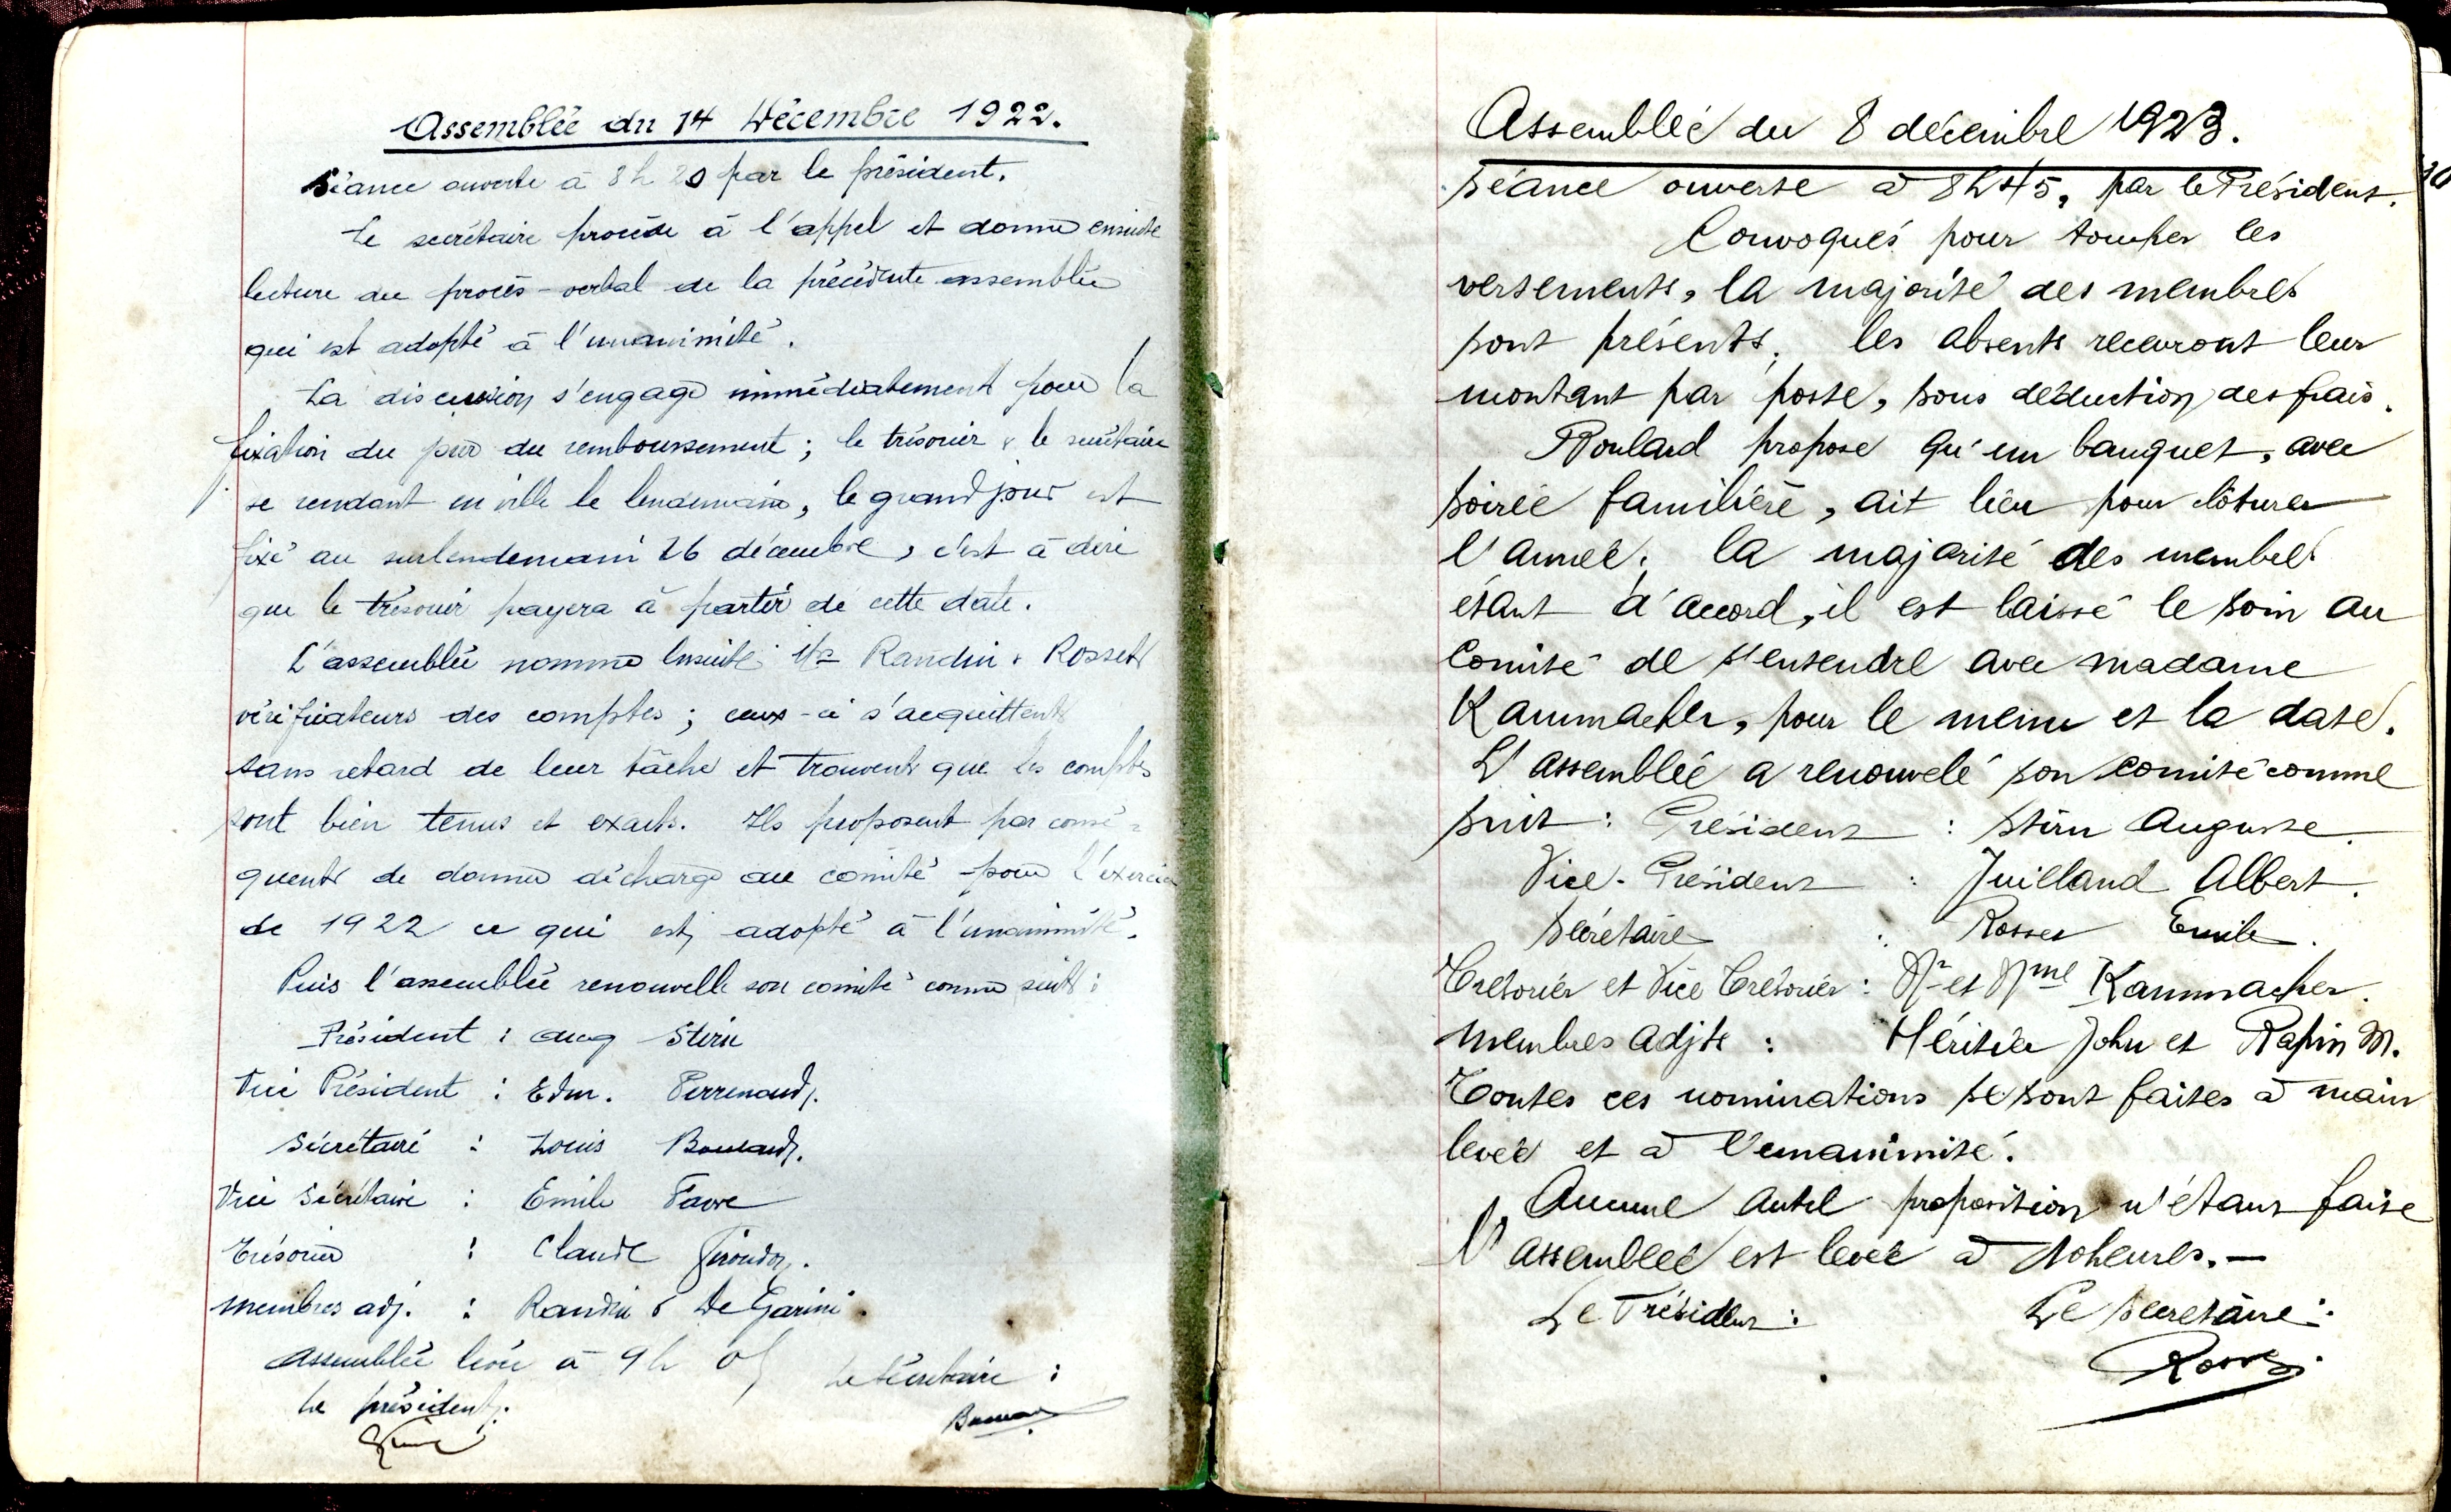 Assemblée du 14 Décembre 1922.
Séance ouverte à 8 h 20 par le président.
Le secrétaire procède à l'appel et donne ensuite
lecture du procès-verbal de la précédente assemblée
qui est adopté à l'unanimité.
La discussion s'engage immédiatement pour la
fixation du jour du remboursement ; le trésorier & le secrétaire
se rendant en ville le lendemain, le grand jour est
fixé au surlendemain 16 décembre, c'est à dire
que le trésorier payera à partir de cette date.
L'assemblée nomme ensuite Mrs Randin & Rosset
vérificateurs des comptes ; ceux-ci s'acquittent
sans retard de leur tâche et trouvent que les comptes
sont bien tenus et exacts. Ils proposent par consé-
quent de donner décharge au comité pour l'exercice
de 1922 ce qui est adopté à l'unanimité.
Puis l'assemblée renouvelle son comité comme suit :
Président : Aug Stirn
Vice Président : Edm. Perrenoud.
Sécrétaire : Louis Boulaud.
Vice Sécrétaire : Emile Favre
Trésorier : Claude
membres adj. : Randin & De Garini.
Assemblée levée à 9 h
Le Sécrétaire :
Le président.
Assembleé du 8 décembre 1923.
10
Séance ouverte à 8h45, par le Président.
Convoqués pour toucher les
versements, la majorité des membres
sont présents. les absents recevront leur
montant par poste, sous déduction des frais.
Boulard propose qu'un banquet, avec
soirée familière, ait lieu pour clôturer
l'année. la majorité des membres
étant d'accord, il est laissé le soin au
Comité de s'entendre avec madame
Kammacher, pour le menu et la date.
L'assemblée a renouvelé son comité comme
suit : Président : Stirn Auguste.
Vice-Président : Juilland Albert.
Secrétaire : Rosset Emile.
Tresorier et Vice Tresorier : Mr et Mme Kammacher.
Membres adjts : Héritier John et Rapin M.
Toutes ces nominations se sont faites à main
levée et à l'unanimité.
Aucune autre proposition n'étant faite
l'assemblee est levée à 10 heures.—
Le Président :
Le Secretaire :
Rosset